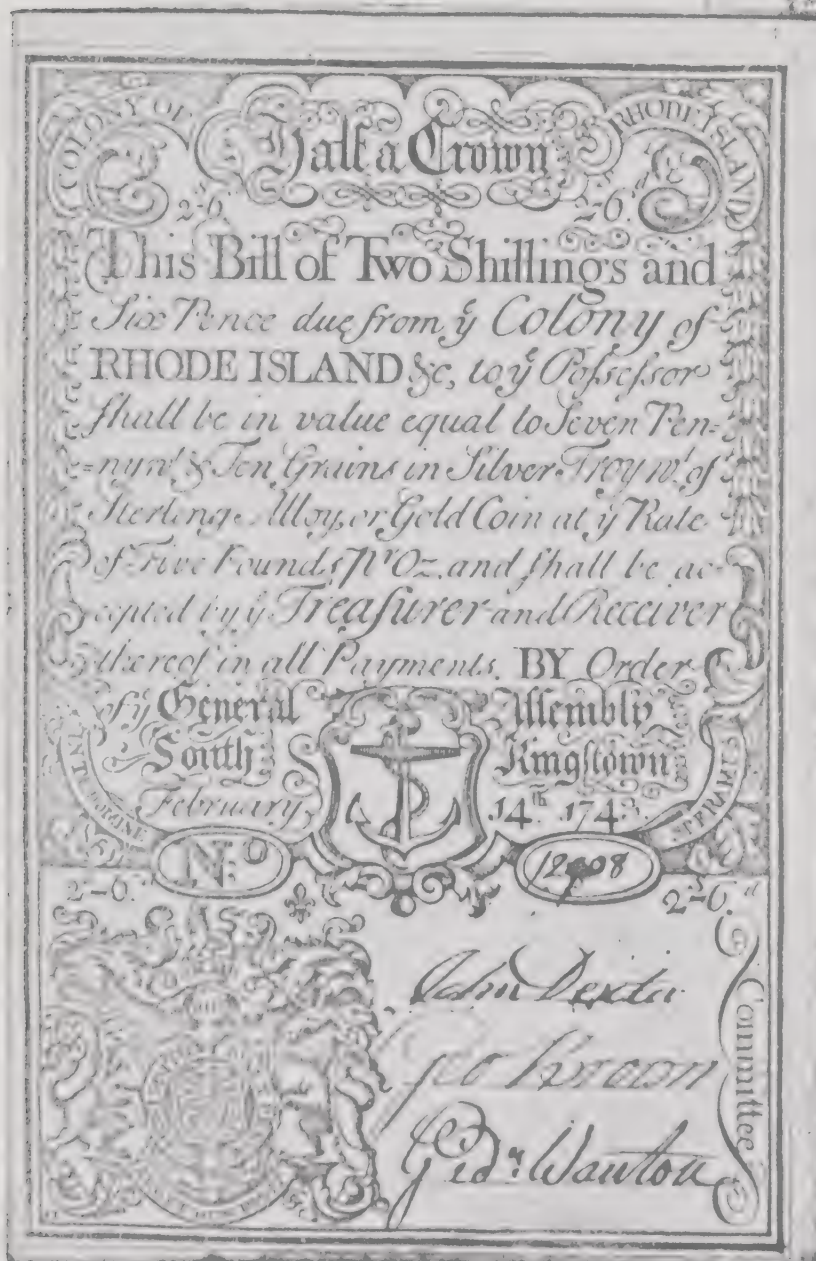 COLONY OF
RHODE ISLAND
Half a Crown
2ˢ-6ᵈ
2ˢ-6ᵈ
This Bill of Two Shillings and
Six Pence due from yᵉ Colony of
RHODE ISLAND &c, to yᵉ Poſseſsor
ſhall be in value equal to Seven Pen=
=nywᵗ & Ten Grains in Silver Troy wᵗ of
Sterling Alloy, or Gold Coin at yᵉ Rate
of Five Pounds Pʳ Oz. and ſhall be ac-
cepted by yᵉ Treaſurer and Receiver
thereof in all Payments. BY Order
of yᵉ General Aſsembly
South Kingſtown
February 14ᵗʰ 174
Nº
2ˢ-6ᵈ
2ˢ-6ᵈ
John Dexter
Geo Brown
Gidⁿ Wanton
Committee